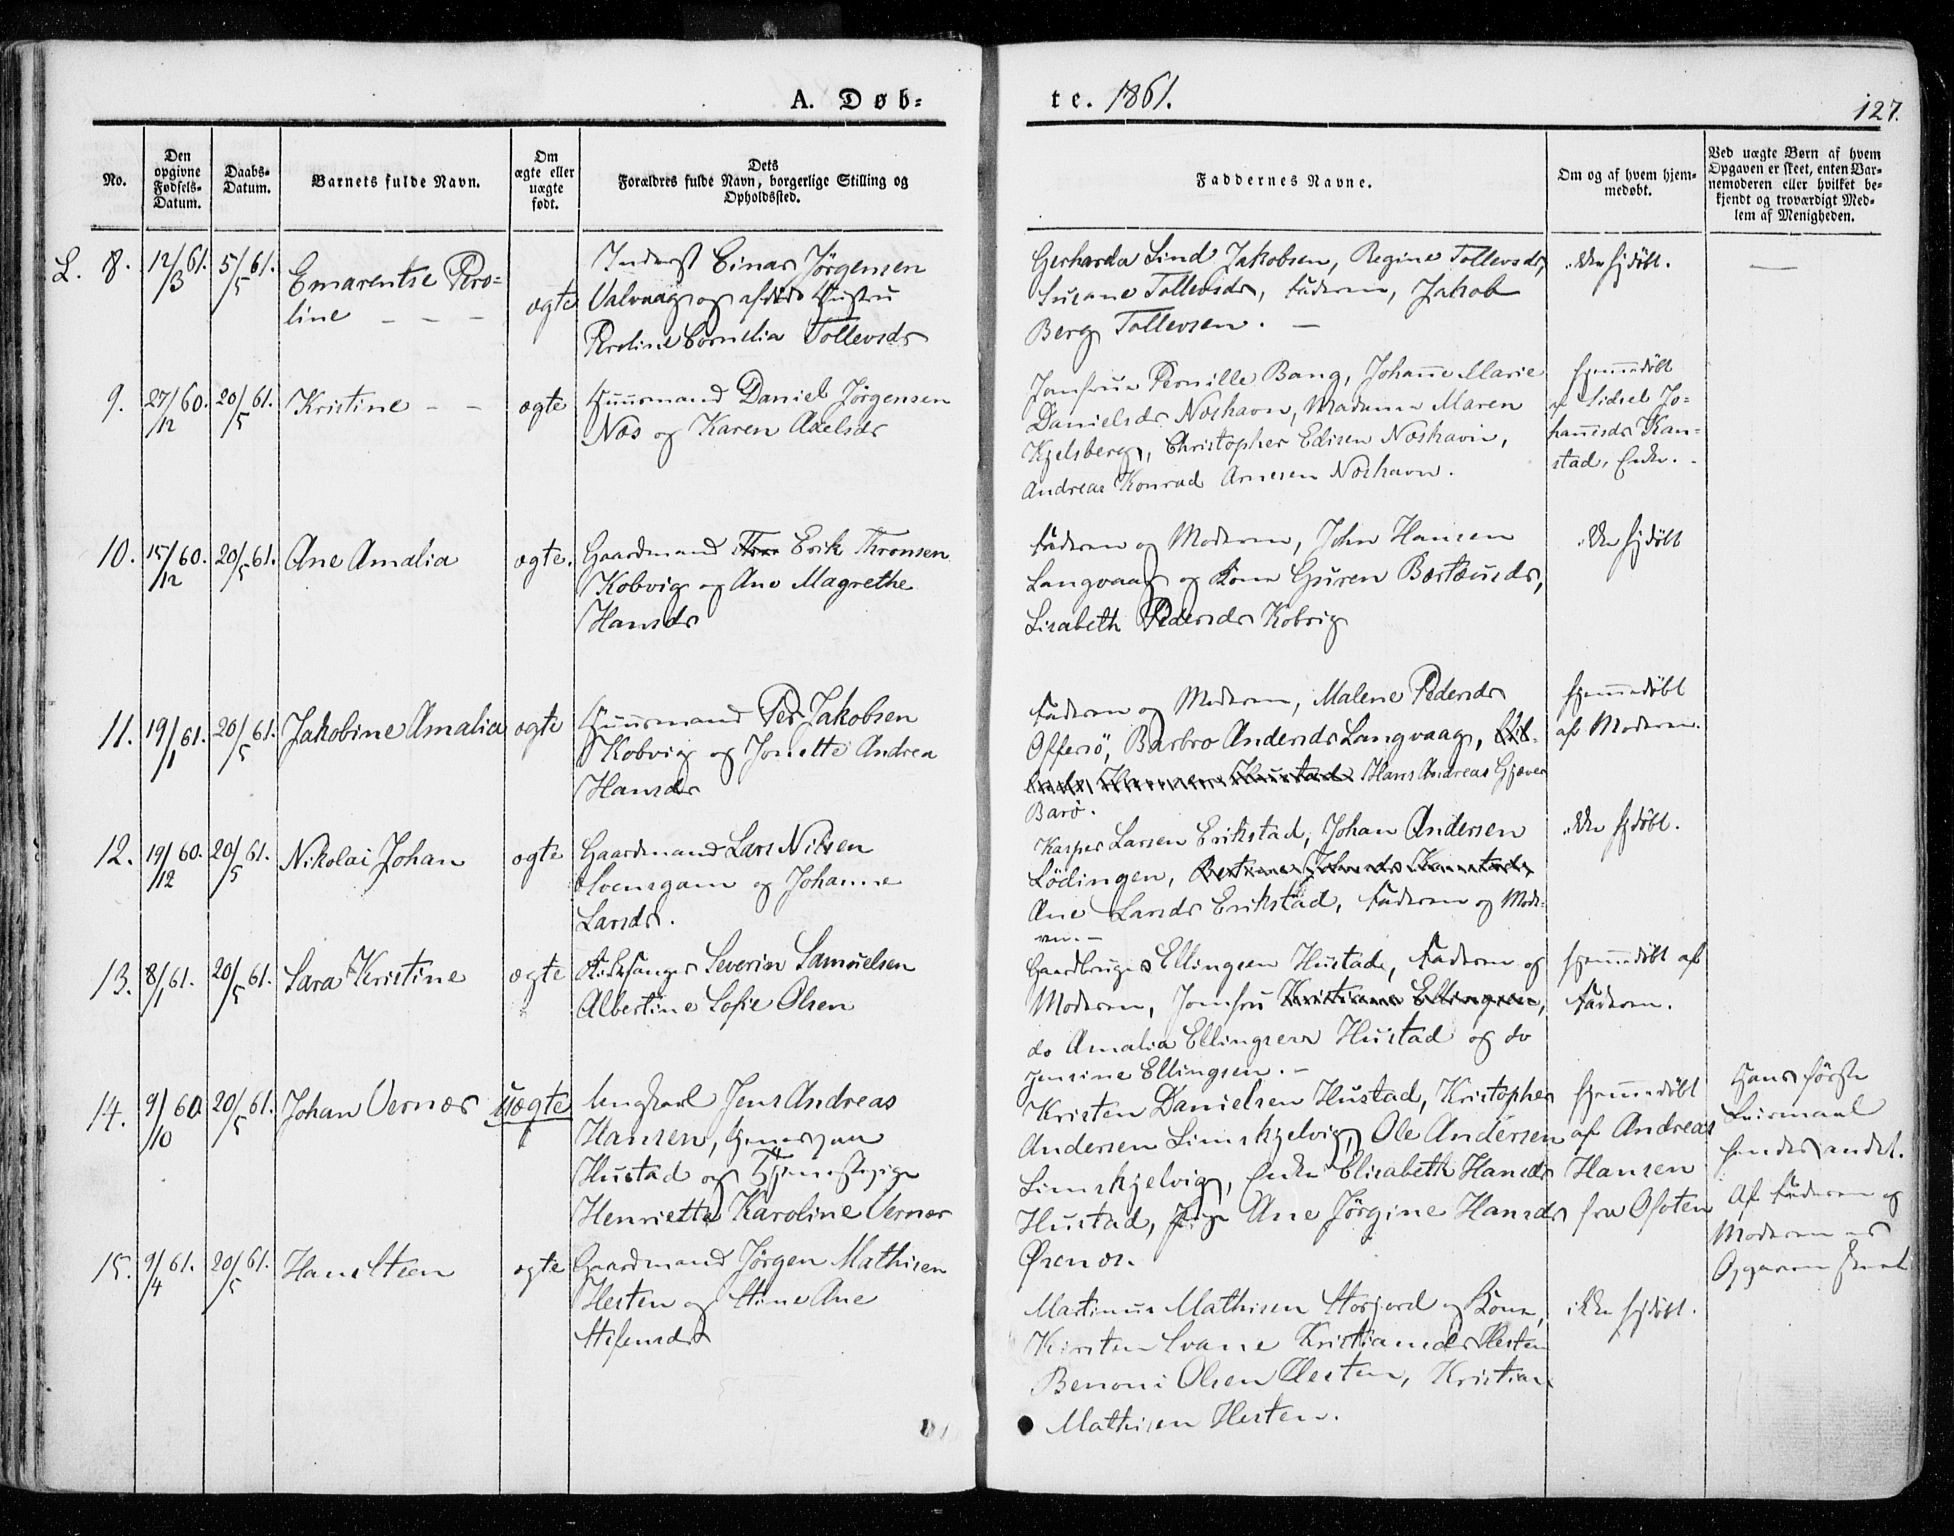 A. Døb-
te. 1861.
127.
No.
Den opgivne Fødsels-Datum.
Daabs-Datum.
Barnets fulde Navn.
Om ægte eller uægte født.
Dets Forældres fulde Navn, borgerlige Stilling og Opholdssted.
Faddernes Navne.
Om og af hvem hjemmedøbt.
Ved uægte Børn af hvem Opgaven er skeet, enten Barnemoderen eller hvilket bekjendt og troværdigt Medlem af Menigheden.
L. 8.
12/3 61.
5/5 61.
Emarentse Pero-
line - - -
ægte
Inderst Einar Jørgensen
Valvaag og afdøde Hustru
Peroline Cornelia Tollevsdr
Gerharda Lind Jakobsen, Regine Tollevsdr,
Susane Tollevsdr, Faderen, Jakob
Berg Tollevsen. -
ikke hjdøbt.
9.
27/12 60.
20/5 61.
Kristine - -
ægte
Huusmand Daniel Jørgensen
Næs og Karen Axelsdr
Jomfrue Pernille Bang, Johanne Marie
Danielsdr Næshavn, Madame Maren
Kjelsberg, Christopher Edisen Næshavn,
Andreas Konrad Arnesen Næshavn.
hjemmedøbt
af Sidsel Jo-
hannesdr Kan-
stad, Enke. -
10.
15/12 60.
20/5 61.
Ane Amalia
ægte.
Gaardmand Erik Thronsen
Kobvig og Ane Magrethe
Hansdr
Faderen og Moderen, John Hansen
Langvaag og Kone Guren Bertæusdr,
Lisabeth Pedersdr Kobvig
ikke hjdøbt
11.
19/1 61.
20/5 61.
Jakobine Amalia
ægte
Huusmand Per Jakobsen
Kobvig og Jonette Andrea
Hansdr
Faderen og Moderen, Malene Pedersdr
Offersö, Barbro Andersdr Langvaag,
Hans Andreas Gjæver
Barö.
hjemmedøbt
af Moderen.
12.
19/12 60.
20/5 61.
Nikolai Johan
ægte
Gaardmand Lars Nilsen
Svensgam og Johanne
Larsdr.
Kasper Larsen Erikstad, Johan Andersen
Lödingen,
Ane Larsdr Erikstad, Faderen og Mode-
ren. -
ikke hjdøbt.
13.
8/1 61.
20/5 61.
Sara Kristine
ægte
Kirkesanger Severin Samuelsen
Albertine Sofie Olsen
Gaardbruger Ellingsen Hustad, Faderen og
Moderen, Jomfru Kristiana Ellingsen,
do Amalia Ellingsen Hustad og do
Jensine Ellingsen. -
hjemmedøbt af
Faderen.
14.
9/10 60
20/5 61.
Johan Vernær
Uægte
Ungkarl Jens Andreas
Hansen,
Hustad og Tjenestepige
Henriette Karoline Verner
Kristen Danielsen Hustad, Kristopher
Andersen Limskjelvig, Ole Andersen
Limskjelvig, Enke Elisabeth Hansdr
Hustad, Pige Ane Jörgine Hansdr
Örenær.
hjemmedøbt
af Andreas
Hansen
fra Ofoten
Hans förste
Leiermaal
hendes andet.
Af Faderen og
Moderen er
Opgaven skeet
15.
9/4 61.
20/5 61.
Hans Steen
ægte
Gaardmand Jørgen Mathisen
Hesten og Stine Ane
Stefensdr
Martinus Mathisen Storjord og Kone,
Kirsten Svane Kristiansdr Hesten
Benoni Olsen Hesten, Kristian
Mathisen Hesten.
ikke hjdøbt.